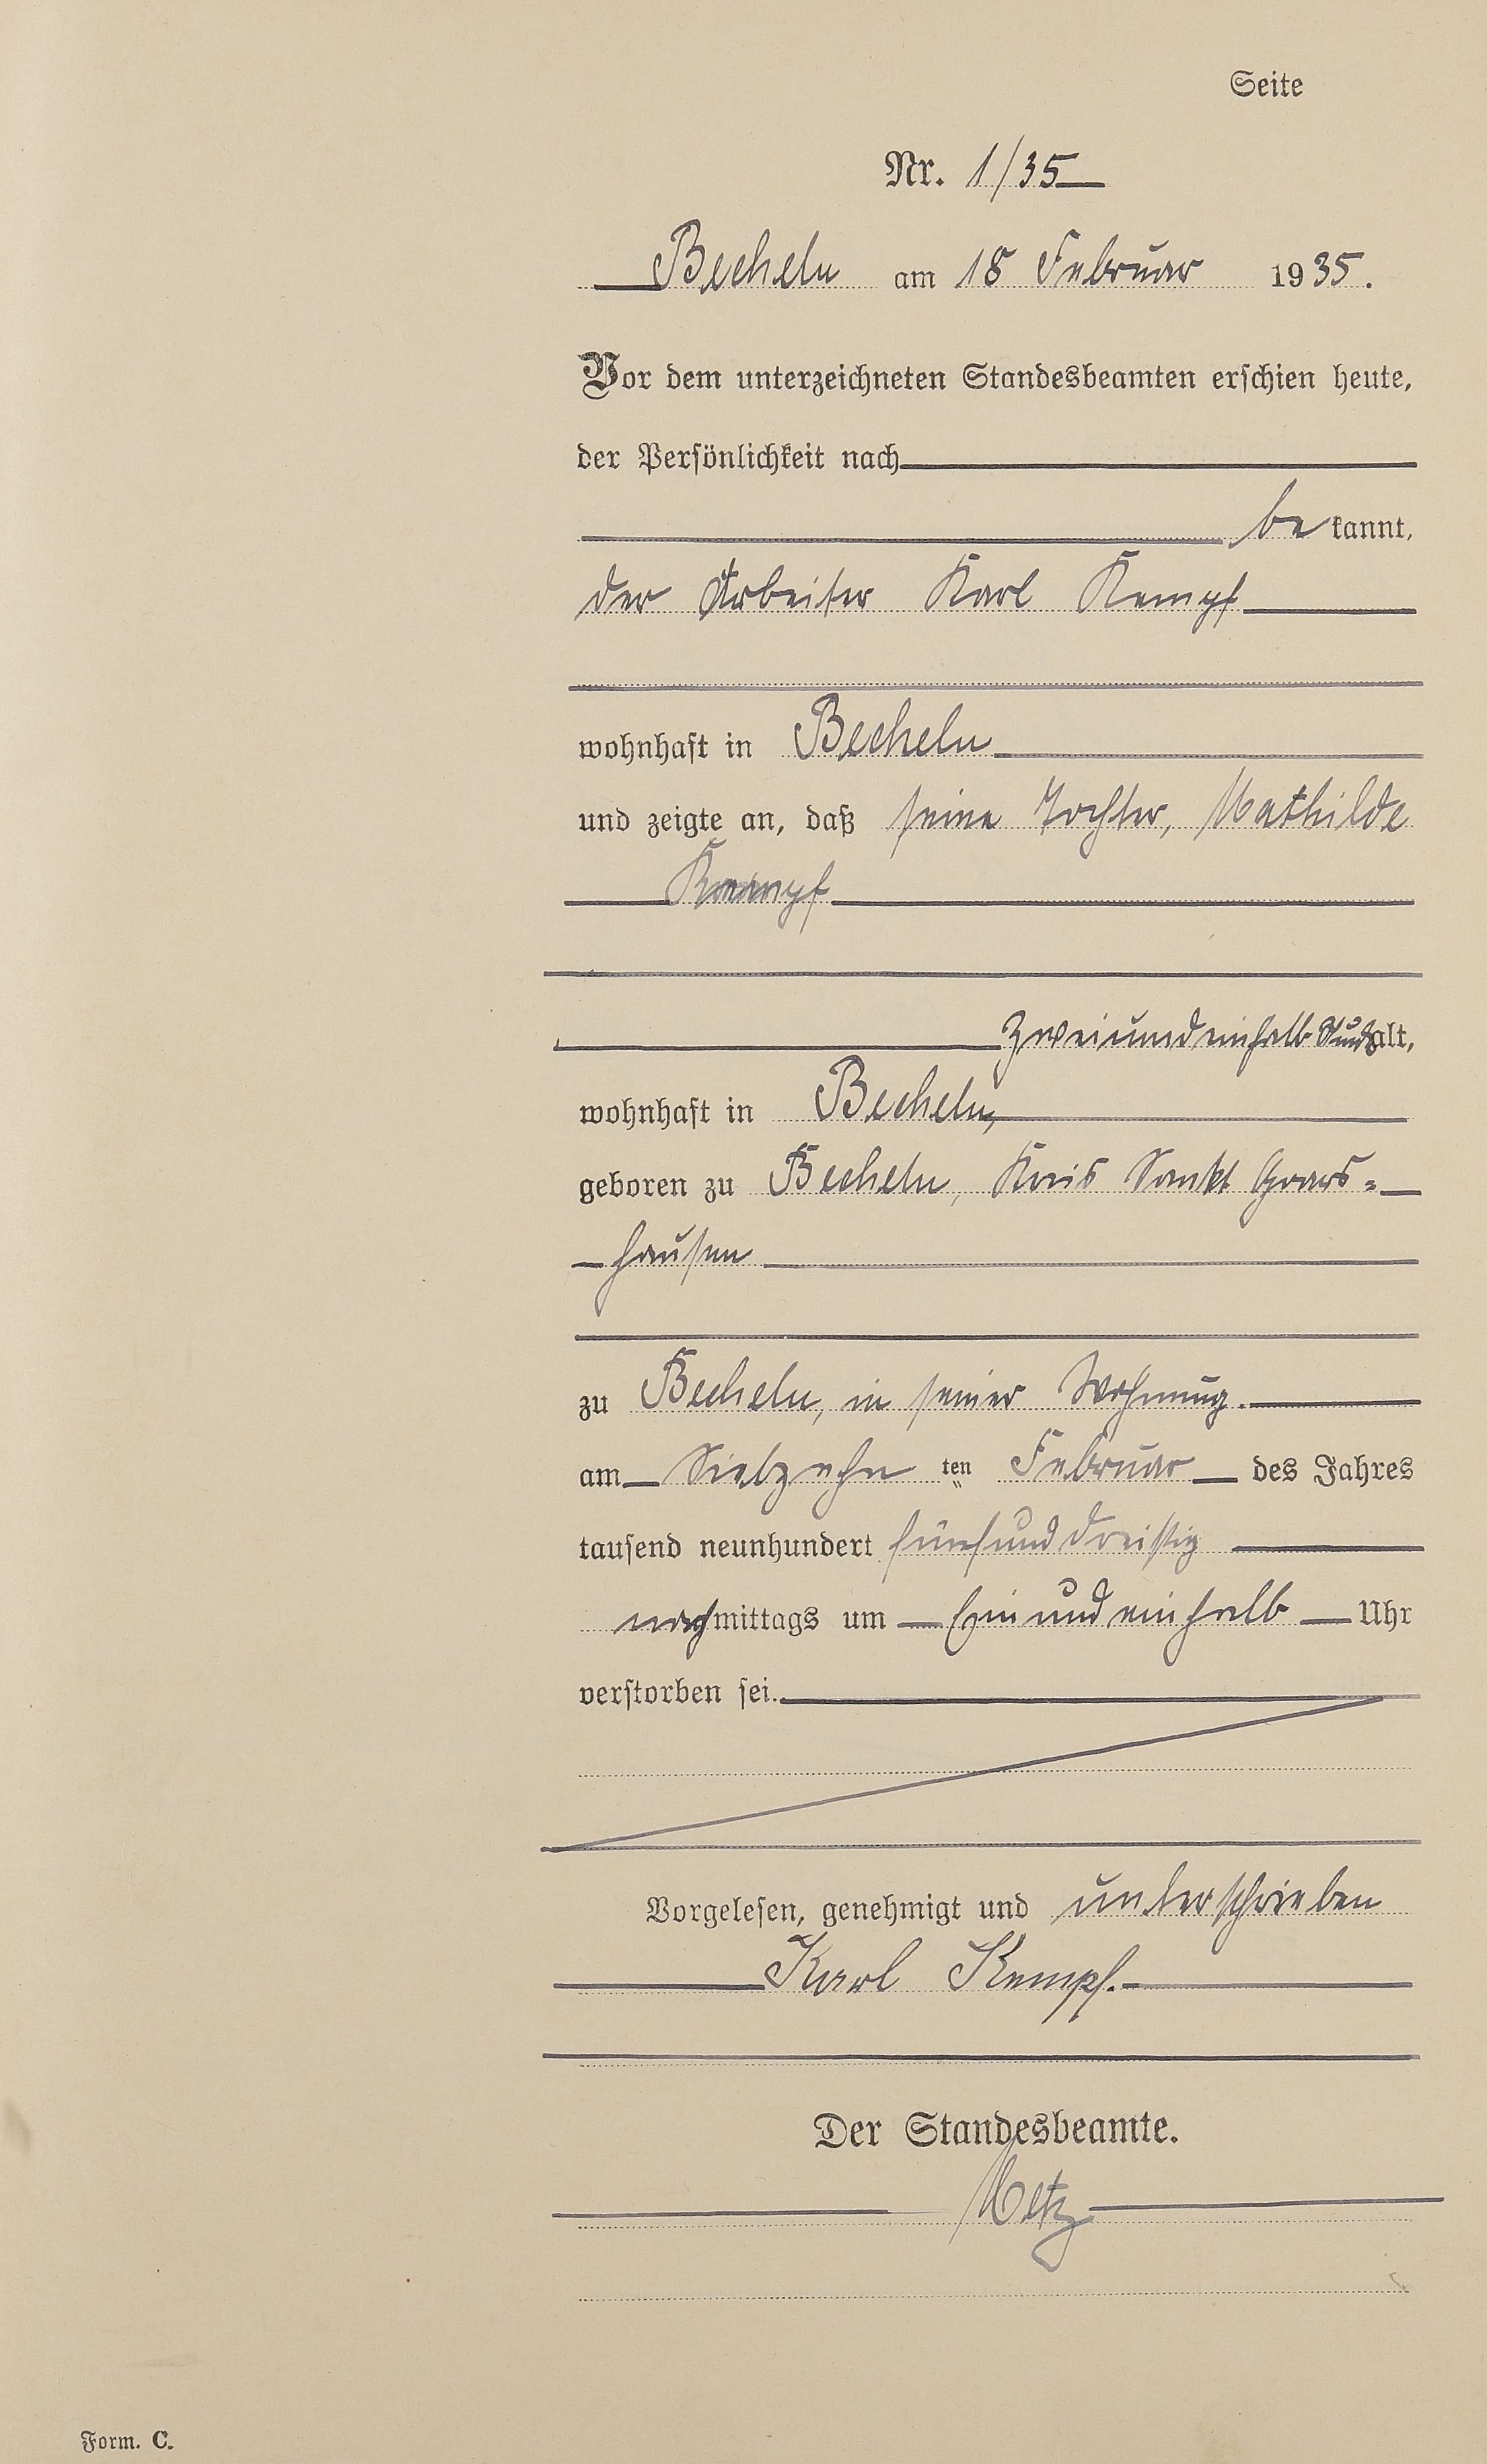 Seite
Nr. 1/35
Becheln am 18 Februar 1935.
Vor dem unterzeichneten Standesbeamten erschien heute,
der Persönlichkeit nach
be kannt,
der Arbeiter Karl Kempf
wohnhaft in Becheln
und zeigte an, daß seine Tochter, Mathilde
Kempf
zweiundeinhalb Stunde alt,
wohnhaft in Becheln,
geboren zu Becheln, Kreis Sankt Goars=
hausen
zu Becheln, in seiner Wohnung.
am Siebzehn ten Februar des Jahres
tausend neunhundert fünfunddreißig
nachmittags um Einundeinhalb Uhr
verstorben sei.
Vorgelesen, genehmigt und unterschrieben
Karl Kempf.
Der Standesbeamte.
Metz
Form. C.